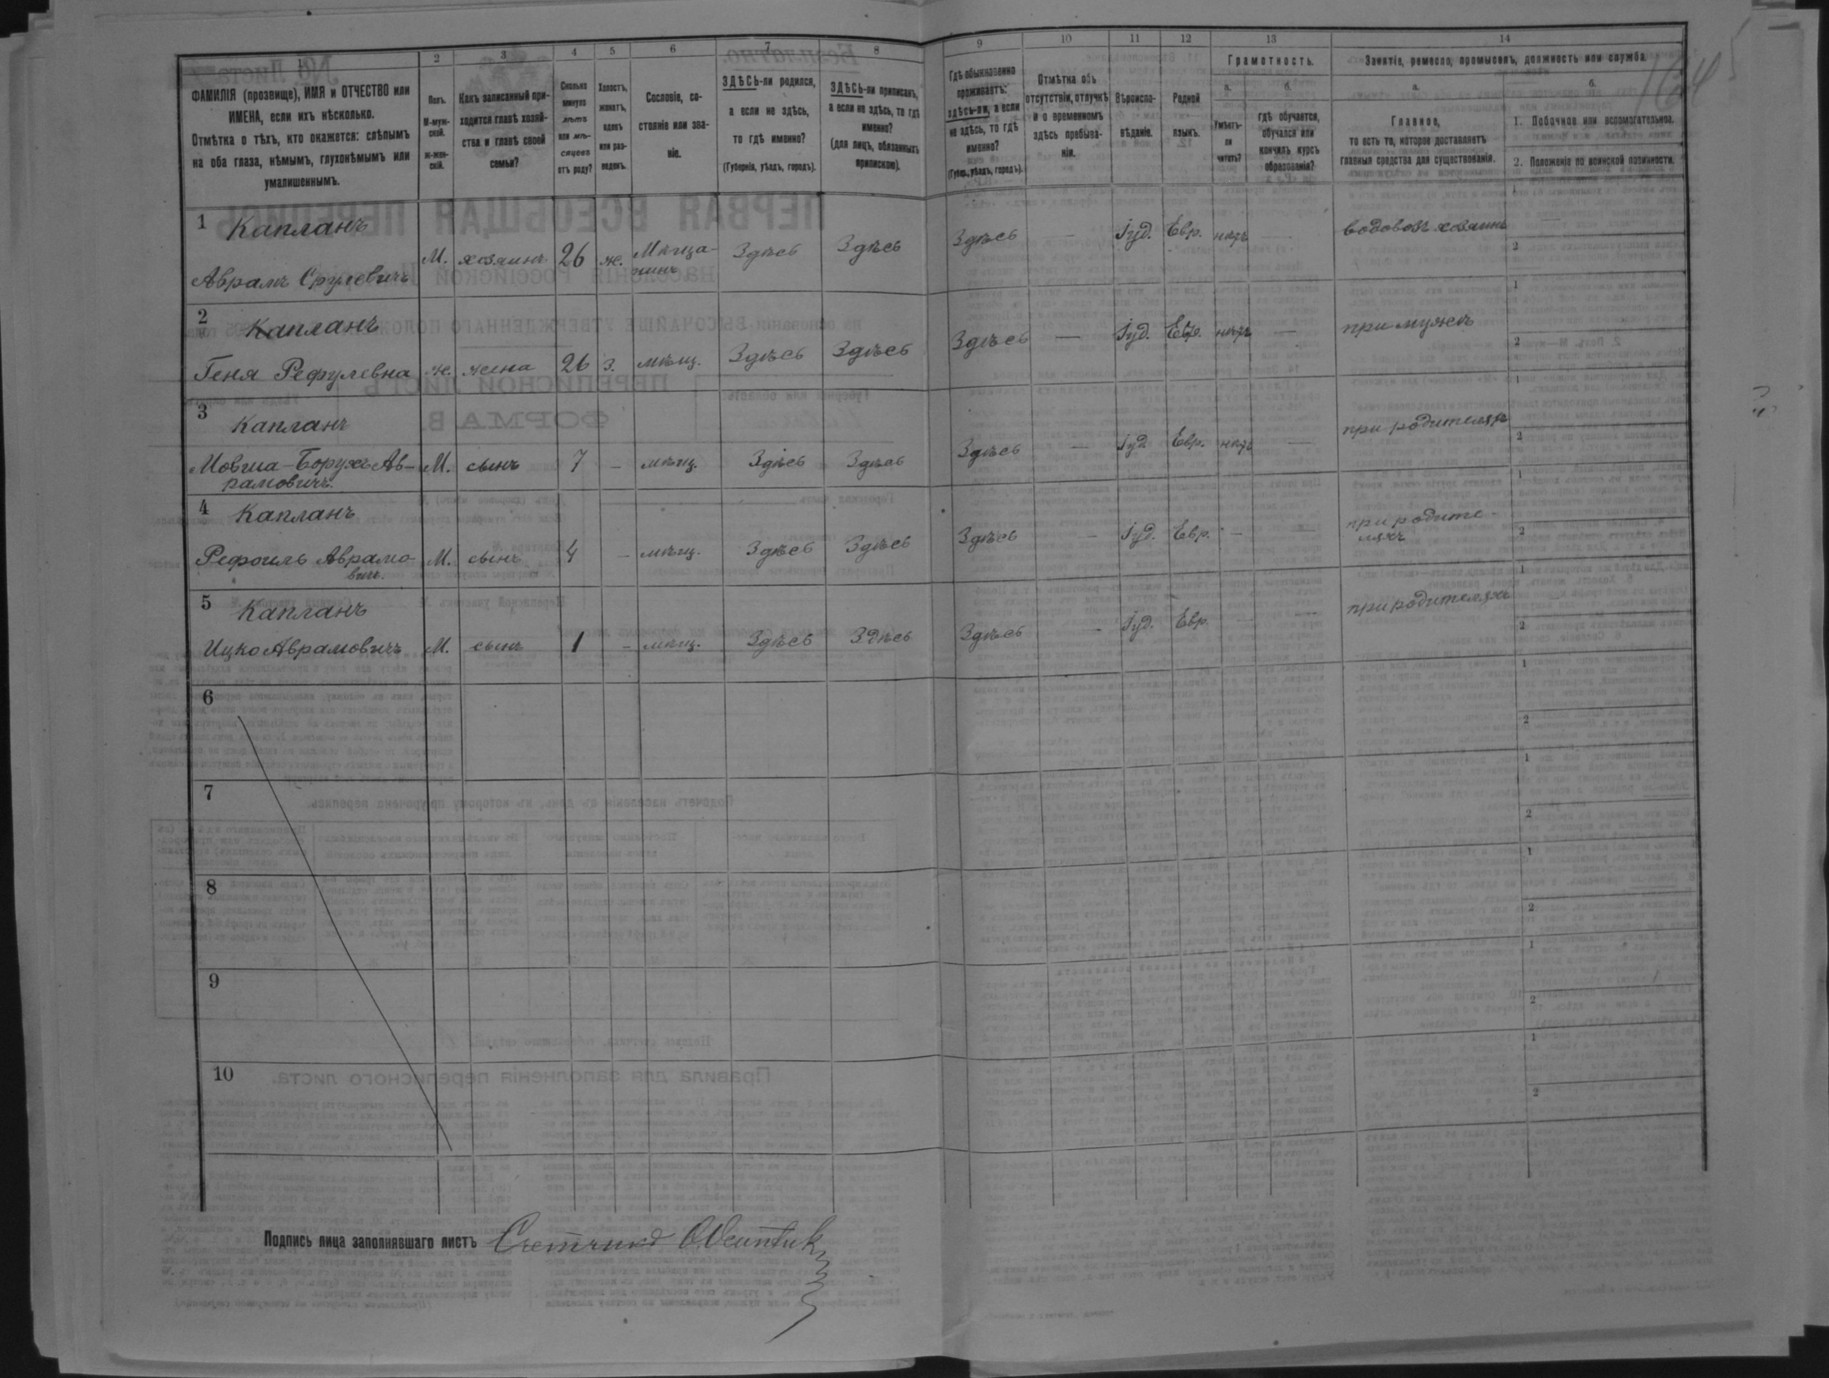 1 2 3 4 5 6 7 8 9 10 11 12 13 14
ФАМИЛІЯ (прозвище), ИМЯ и ОТЧЕСТВО или
ИМЕНА, если ихъ нѣсколько.
Отмѣтка о тѣхъ, кто окажется: слѣпымъ
на оба глаза, нѣмымъ, глухонѣмымъ или
умалишеннымъ.
Полъ.
М-муж-
ской.
Ж-жен-
скій.
Какъ записанный при-
ходится главѣ хозяй-
ства и главѣ своей
семьи?
Сколько
минуло
лѣтъ
или мѣ-
сяцевъ
отъ роду?
Холостъ,
женатъ,
вдовъ
или раз-
веденъ.
Сословіе, со-
стояніе или зва-
ніе.
ЗДѢСЬ-ли родился,
а если не здѣсь,
то гдѣ именно?
(Губернія, уѣздъ, городъ).
ЗДѢСЬ-ли приписанъ,
а если не здѣсь, то гдѣ
именно?
(для лицъ, обязанныхъ
припискою).
Гдѣ обыкновенно
проживаетъ:
здѣсь-ли, а если
не здѣсь, то гдѣ
именно?
(Губер., уѣздъ, городъ).
Отмѣтка объ
отсутствіи, отлучкѣ
и о временномъ
здѣсь пребыва-
ніи.
Вѣроиспо-
вѣданіе.
Родной
языкъ.
Грамотность.
а.
Умѣетъ-
ли
читать?
б.
гдѣ обучается,
обучался или
кончилъ курсъ
образованія?
Занятіе, ремесло, промыселъ, должность или служба.
а.
Главное,
то есть то, которое доставляетъ
главныя средства для существованія.
б.
1. Побочное или вспомогательное.
2. Положеніе по воинской повинности.
1 Капланъ
Аврамъ Срулевичъ М. хозяинъ 26 ж. Мѣща-
нинъ Здѣсь Здѣсь Здѣсь — Іуд. Евр. нѣтъ — водовозъ хозяинъ
2 Капланъ
Геня Рефулевна ж. жена 26 З. мѣщ. Здѣсь Здѣсь Здѣсь — Іуд. Евр. нѣтъ — при мужѣ
3 Капланъ
Мовша-Борухъ Ав-
рамовичъ. М. сынъ 7 – мѣщ. Здѣсь Здѣсь Здѣсь — Іуд. Евр. нѣтъ — при родителяхъ
4 Капланъ
Рефоиль Аврамо-
вичъ. М. сынъ 4 – мѣщ. Здѣсь Здѣсь Здѣсь – Іуд. Евр. – – при родите-
ляхъ
5 Капланъ
Ицко Аврамовичъ М. сынъ 1 – мѣщ. Здѣсь Здѣсь Здѣсь – Іуд. Евр. – – при родителяхъ
6
7
8
9
10
Подпись лица заполнявшаго листъ Счетчикъ